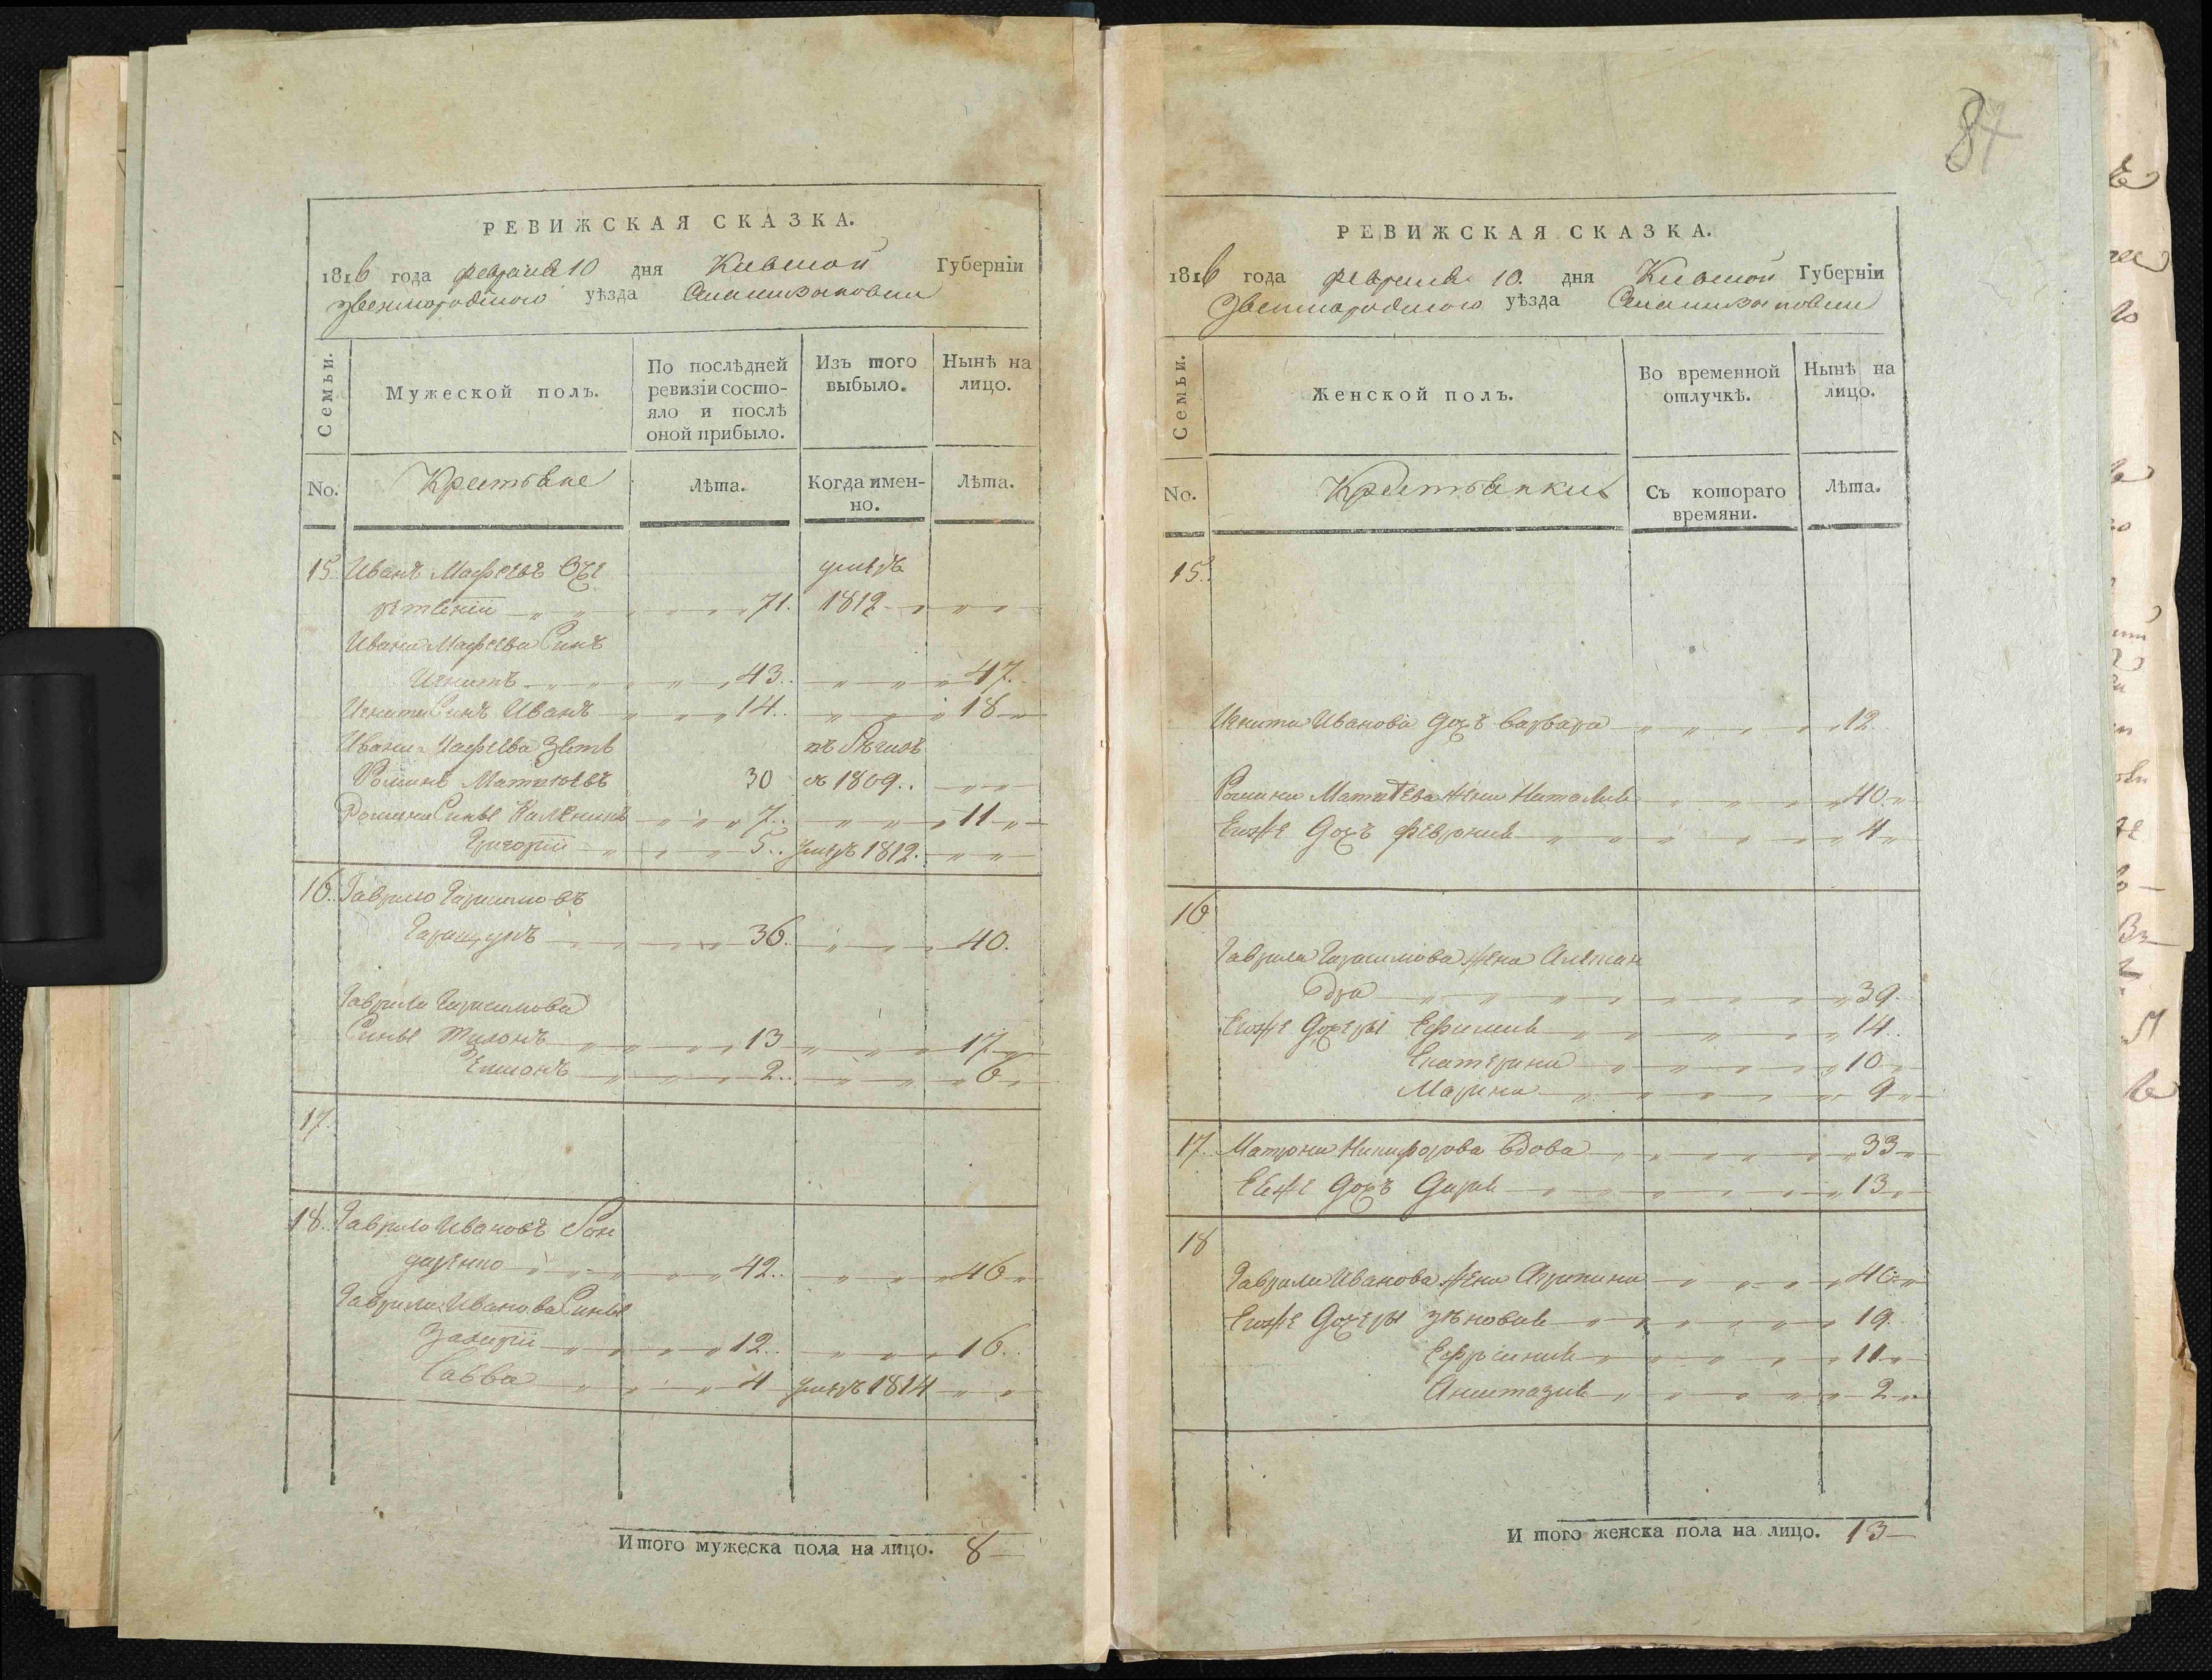 РЕВИЖСКАЯ СКАЗКА.
1816 года февраля 10 дня Киевской Губернїи
Звенигородского уѣзда
Семьи.
Мужеской полъ.
По послѣдней ревизїи состояло и послѣ оной прибыло.
Изъ того выбыло.
Нынѣ на лицо.
No.
Крестьяне
Лѣта.
Когда именно.
Лѣта.
15. Иванъ Мафѣевъ
71. умеръ 1812
Ивана Мафѣева Синъ
Игнатъ 43. 47.
Игната Синъ Иванъ 14. 18
Ивана Мафѣева Зять
Романъ Матвѣевъ 30 1809.
Романа Сины Каленикъ 7. 11
Григорїй 5. умеръ 1812.
16. Гаврило Гарасимовъ
36. 40.
Гаврила Гарасимова
Сины Тихонъ 13 17
2. 6
17.
18. Гаврило Ивановъ
42. 46
Гаврила Иванова Сины
Захарїй 12. 16.
Савва 4 умеръ 1814
Итого мужеска пола на лицо. 8
87
РЕВИЖСКАЯ СКАЗКА.
1816 года февраля 10. дня Киевской Губернїи
Звенигородского уѣзда
Семьи.
Женской полъ.
Во временной отлучкѣ.
Нынѣ на лицо.
No.
Крестьянки
Съ котораго времяни.
Лѣта.
15.
Игната Иванова дочь Варвара 12
Романа Матвѣева жена Наталия 40
Егоже дочь Феврония 4
16
Гаврила Гарасимова жена Алексан
дра 39.
Егоже дочеры Ефимия 14
Екатерина 10
Марина 9
17. Матрона Никифорова вдова 33
Еяже дочь Дария 13
18
Гаврила Иванова жена Агрипина
Егоже дочеры Зѣновия 19
Ефросиния 11
Анастазия 2
И того женска пола на лицо. 13